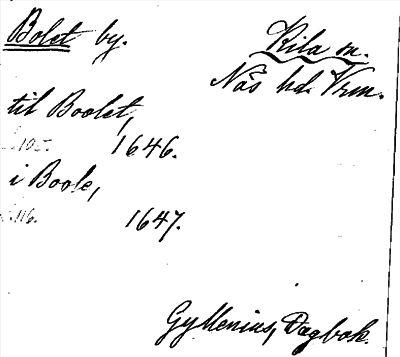 Bolet by.
Kila sn.
Näs hd. Vrm.
til Boolet,
105. 1646.
i Boole,
116. 1647.
Gyllenius, Dagbok.